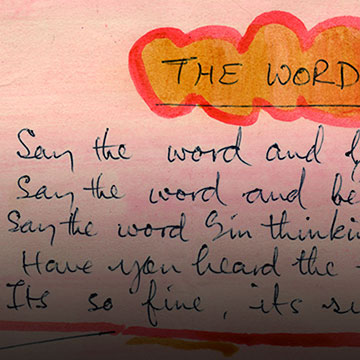 THE WORD
Say the word and
Say the word and be
Say the word I'm thinkin
Have you heard the
Its so fine, its